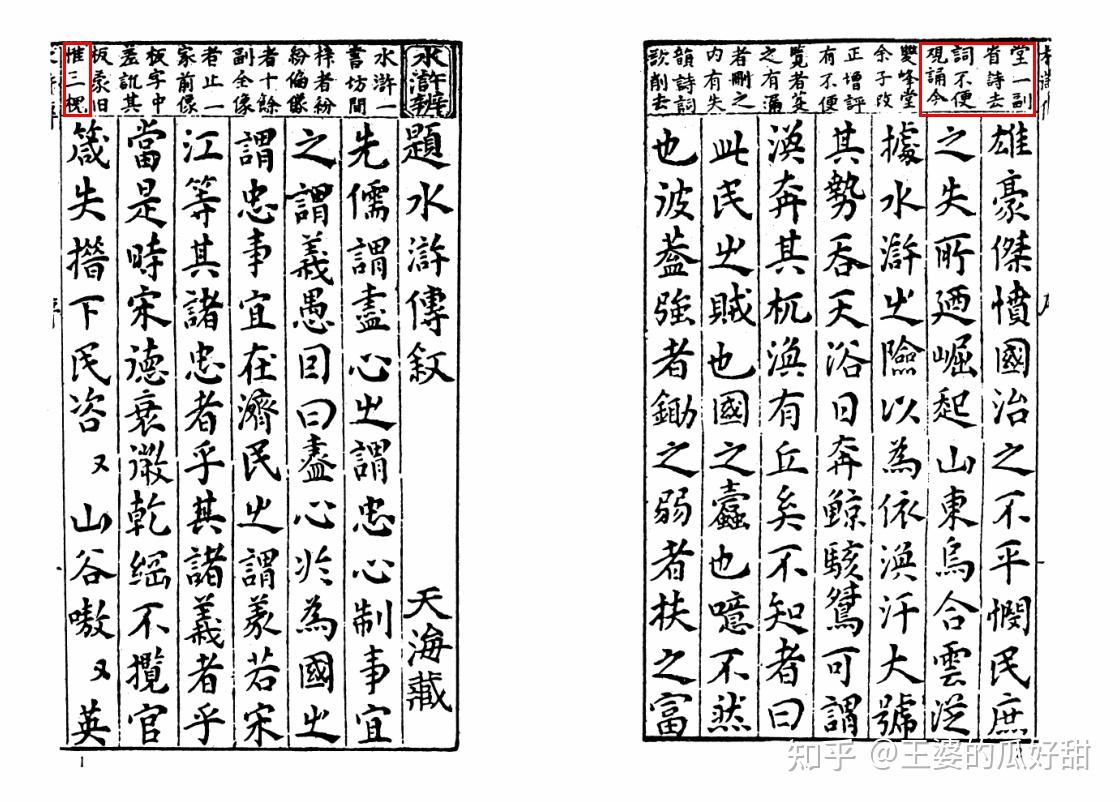 水滸辨
水滸一
書坊間
梓者紛
紛偏像
者十餘
副全像
者止一
家前像
板字中
差訛其
板蒙旧
惟三槐
題水滸傳叙 天海藏
先儒謂盡心之謂忠心制事宜
之謂義愚因曰盡心於為國之
謂忠事宜在濟民之謂義若宋
江等其諸忠者乎其諸義者乎
當是時宋德衰微乾綱不攬官
箴失措下民咨〻山谷嗷〻英
1
堂一副
省詩去
詞不便
覌誦今
雙峰堂
余子改
正增評
有不便
覧者芟
之有漏
者刪之
内有失
韻詩詞
欲削去
雄豪傑憤國治之不平憫民庶
之失所廼崛起山東烏合雲從
據水滸之險以為依渙汗大號
其勢吞天浴日奔鯨駭鴛可謂
渙奔其杌渙有丘矣不知者曰
此民之賊也國之蠹也噫不然
也彼葢強者鋤之弱者扶之富
知乎 @王婆的瓜好甜